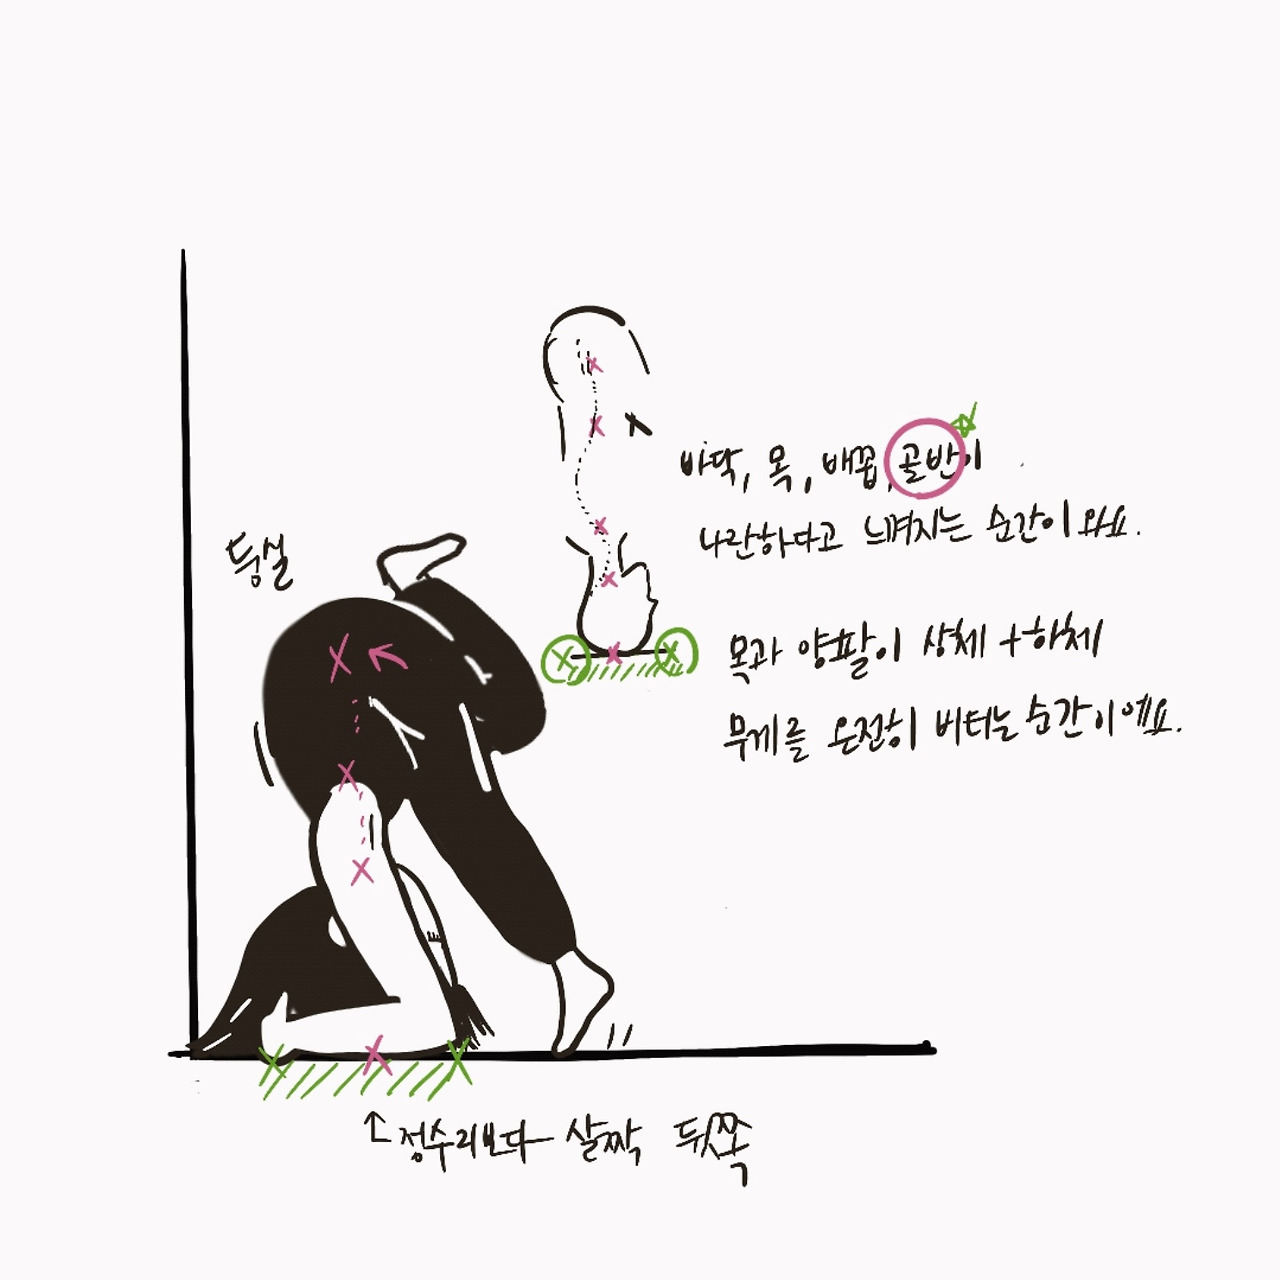 바닥, 목, 배꼽, 골반이
나란하다고 느껴지는 순간이 와요.
둥실
목과 양팔이 상체 + 하체
무게를 온전히 버티는 순간이에요.
↑ 정수리보다 살짝 뒤쪽